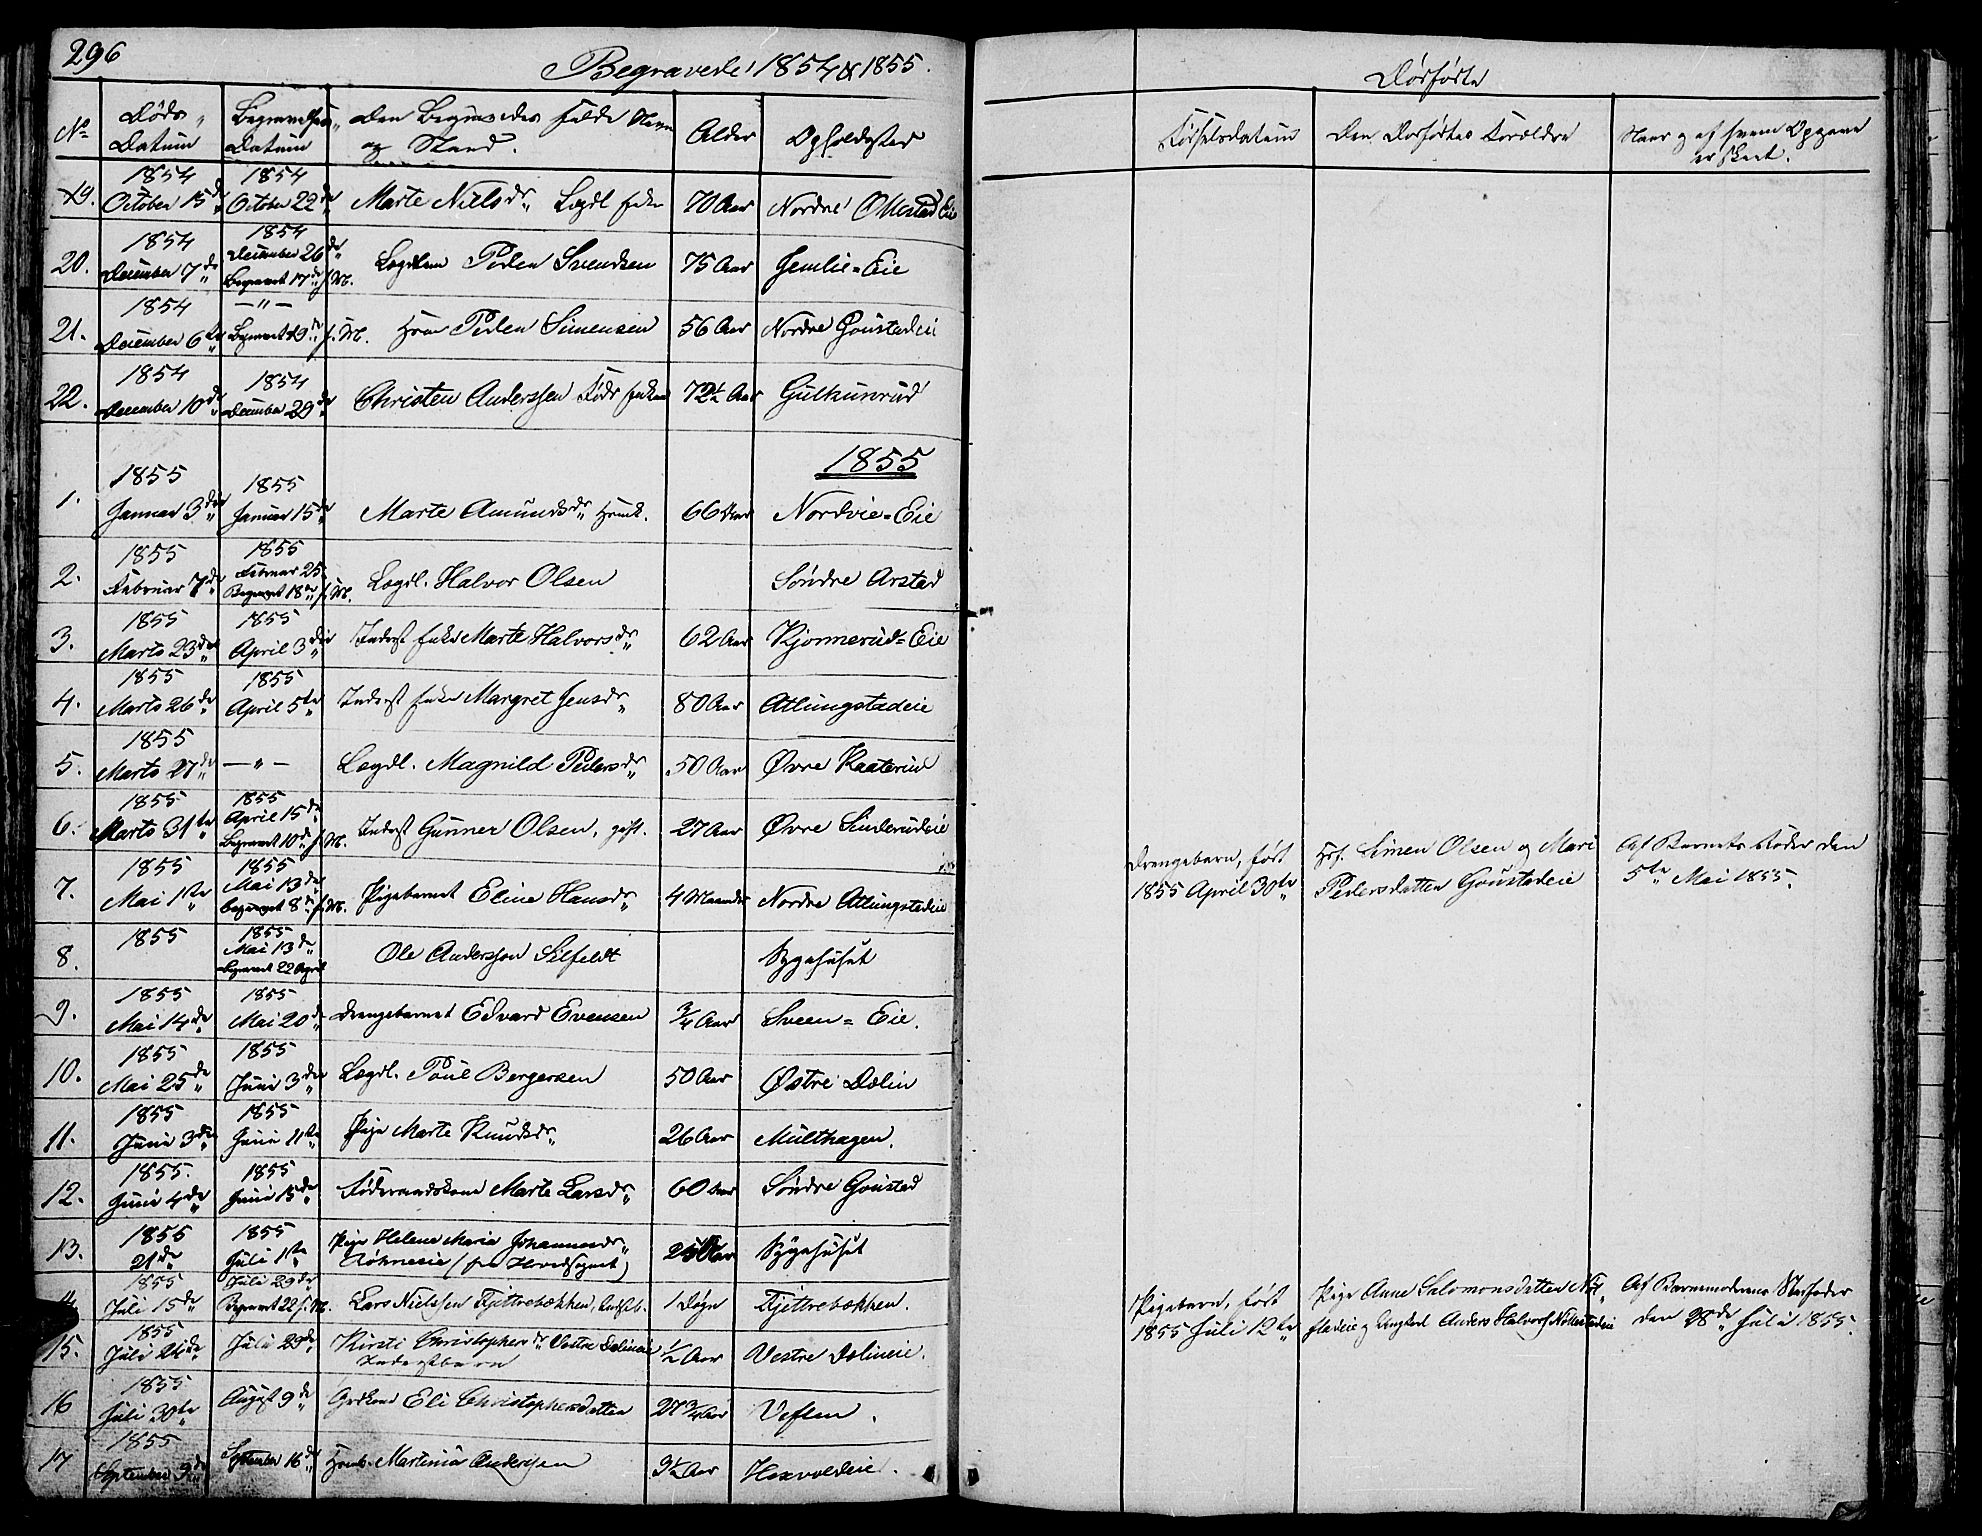 296
Begravede 1854 & 1855.
No
Døds Datum
Begravelses Datum
Den Begravedes fulde Navn og Stand.
Alder
Opholdssted
19. 1854 October 15de 1854 October 22de Marte Nielsdr. Lægdl. 70 Aar Nordre Ollestad Eie
20. 1854 December 7de 1854 December 26de Begravet 17de f. M. Lægdlem Peder Svendsen 75 Aar Jemlie-Eie
21. 1854 December 6te — " — Begravet 19de f. M. Peder Simensen 56 Aar Nordre Goustadeie
22. 1854 December 10de 1854 December 29de Christen Anderssen 72½ Aar Gulkunrud
1855
1. 1855 Januar 3die 1855 Januar 15de Marte Amundsdr. 66 Aar Nordvie-Eie
2. 1855 Februar 7de 1855 Februar 25 Begravet 18de f. M. Lægdl. Halvor Olsen Søndre Arstad
3. 1855 Marts 23de 1855 April 3die Inderst Enke Marte Halvorsdr. 62 Aar Kjonnerud-Eie
4. 1855 Marts 26de 1855 April 5te Inderst Enke Margret Jensdr. 80 Aar Atlungstadeie
5. 1855 Marts 27de — " — Lægdl. Magnild Pedersdr. 50 Aar Øvre Kaaterud
6. 1855 Marts 31te 1855 April 15de Begravet 10de f. M. Inderst Gunner Olsen, gift. 27 Aar Øvre Sinderudeie
7. 1855 Mai 1ste 1855 Mai 13de Begravet 8de f. M. Pigebarnet Eline Hansdr. 4 Maaneder Nordre Atlungstadeie
8. 1855 1855 Mai 13de Begravet 22 April Ole Anderssen Silfeldt Sygehuset
9. 1855 Mai 14de 1855 Mai 20de Drengebarnet Edvard Evensen ¾ Aar Sveen-Eie.
10. 1855 Mai 25de 1855 Juni 3de Lægdl. Poul Bergersen 50 Aar Østre Dælin
11. 1855 Juni 3de 1855 Juni 11te Pige Marte Knudsdr. 26 Aar Multhagen.
12. 1855. Juni 4de 1855 Juni 15de Føderaadskone Marte Larsdr. 60 Aar Søndre Goustad
13. 1855 21de 1855 Juli 1ste Pige Helene Marie Johannesdr. (fra Hovedsognet) Aar Sygehuset
14 1855 Juli 15de Juli 29de Begravet 22 f. M. Lars Nielssen Fjettrebækken, 1 Døgn Fjettrebækken.
15. 1855 Juli 21de Juli 29de Kirsti Christophersdr. Vestre Dælineie Inderstbarn ½ Aar Vestre Dælineie.
16 1855 Juli 30te August 9de Eli Christophersdatter 27¾ Aar Veflen.
17 1855 September 9de September 16de Martinia Anderssen 3½ Aar Hexvoldeie.
Dødfødte
Fødselsdatum
Den Dødfødtes Forældre
Naar og af hvem Opgave er skeet.
Drengebarn, født 1855 April 30te
Simen Olsen og Mari Pedersdatter Goustadeie
Af Barnets Fader den 5te Mai 1855.
Pigebarn, født 1855 Juli 12te
Pige Anne Salomonsdatter og Ungkarl Anders Halvors.
Af Barnemoderens den 28de Juli 1855.